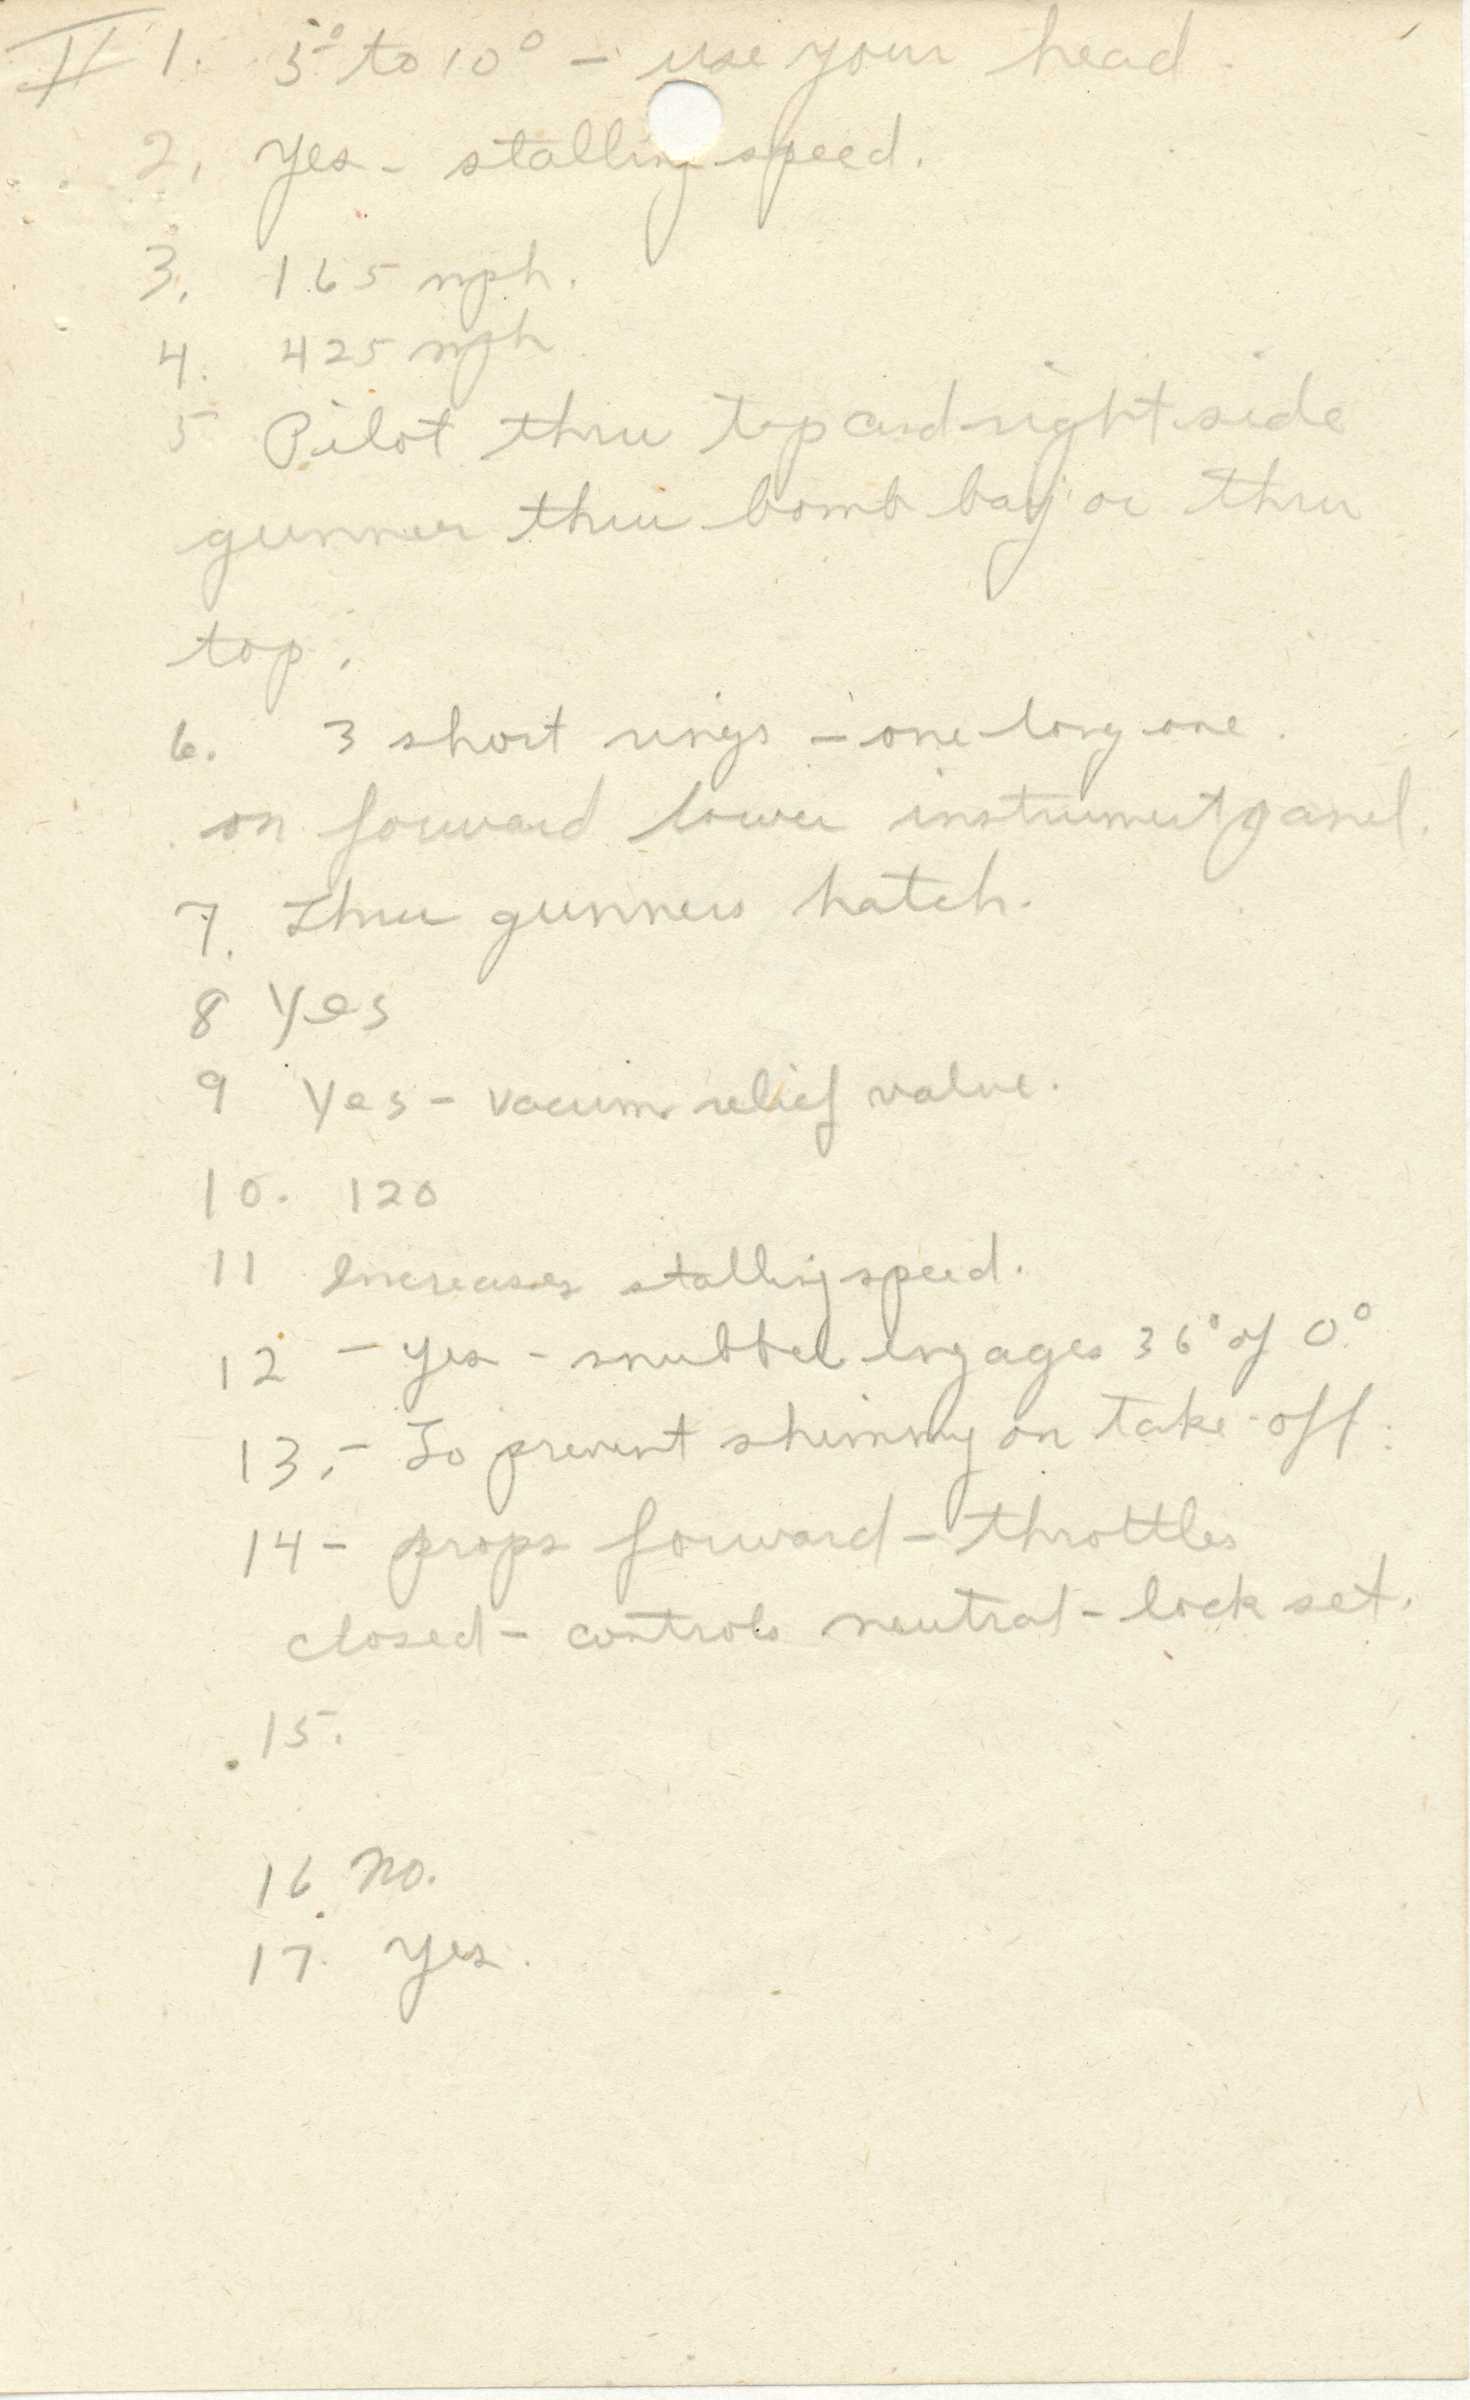 II 1. 5° to 10° - use your head.
2. Yes - stalling speed.
3. 165 mph.
4. 425 mph
5 Pilot thru top and right side
gunner thru bomb bay or thru
top.
6. 3 short rings - one long one.
on forward lower instrument panel.
7. Thru gunners hatch.
8 Yes
9 Yes - vacum relief valve.
10. 120
11 Increases stalling speed.
12 - yes - snubber engages 36° of 0°.
13. - To prevent shimmy on take-off.
14 - props forward - throttles
closed - controls neutral - lock set.
15.
16 No.
17. Yes.